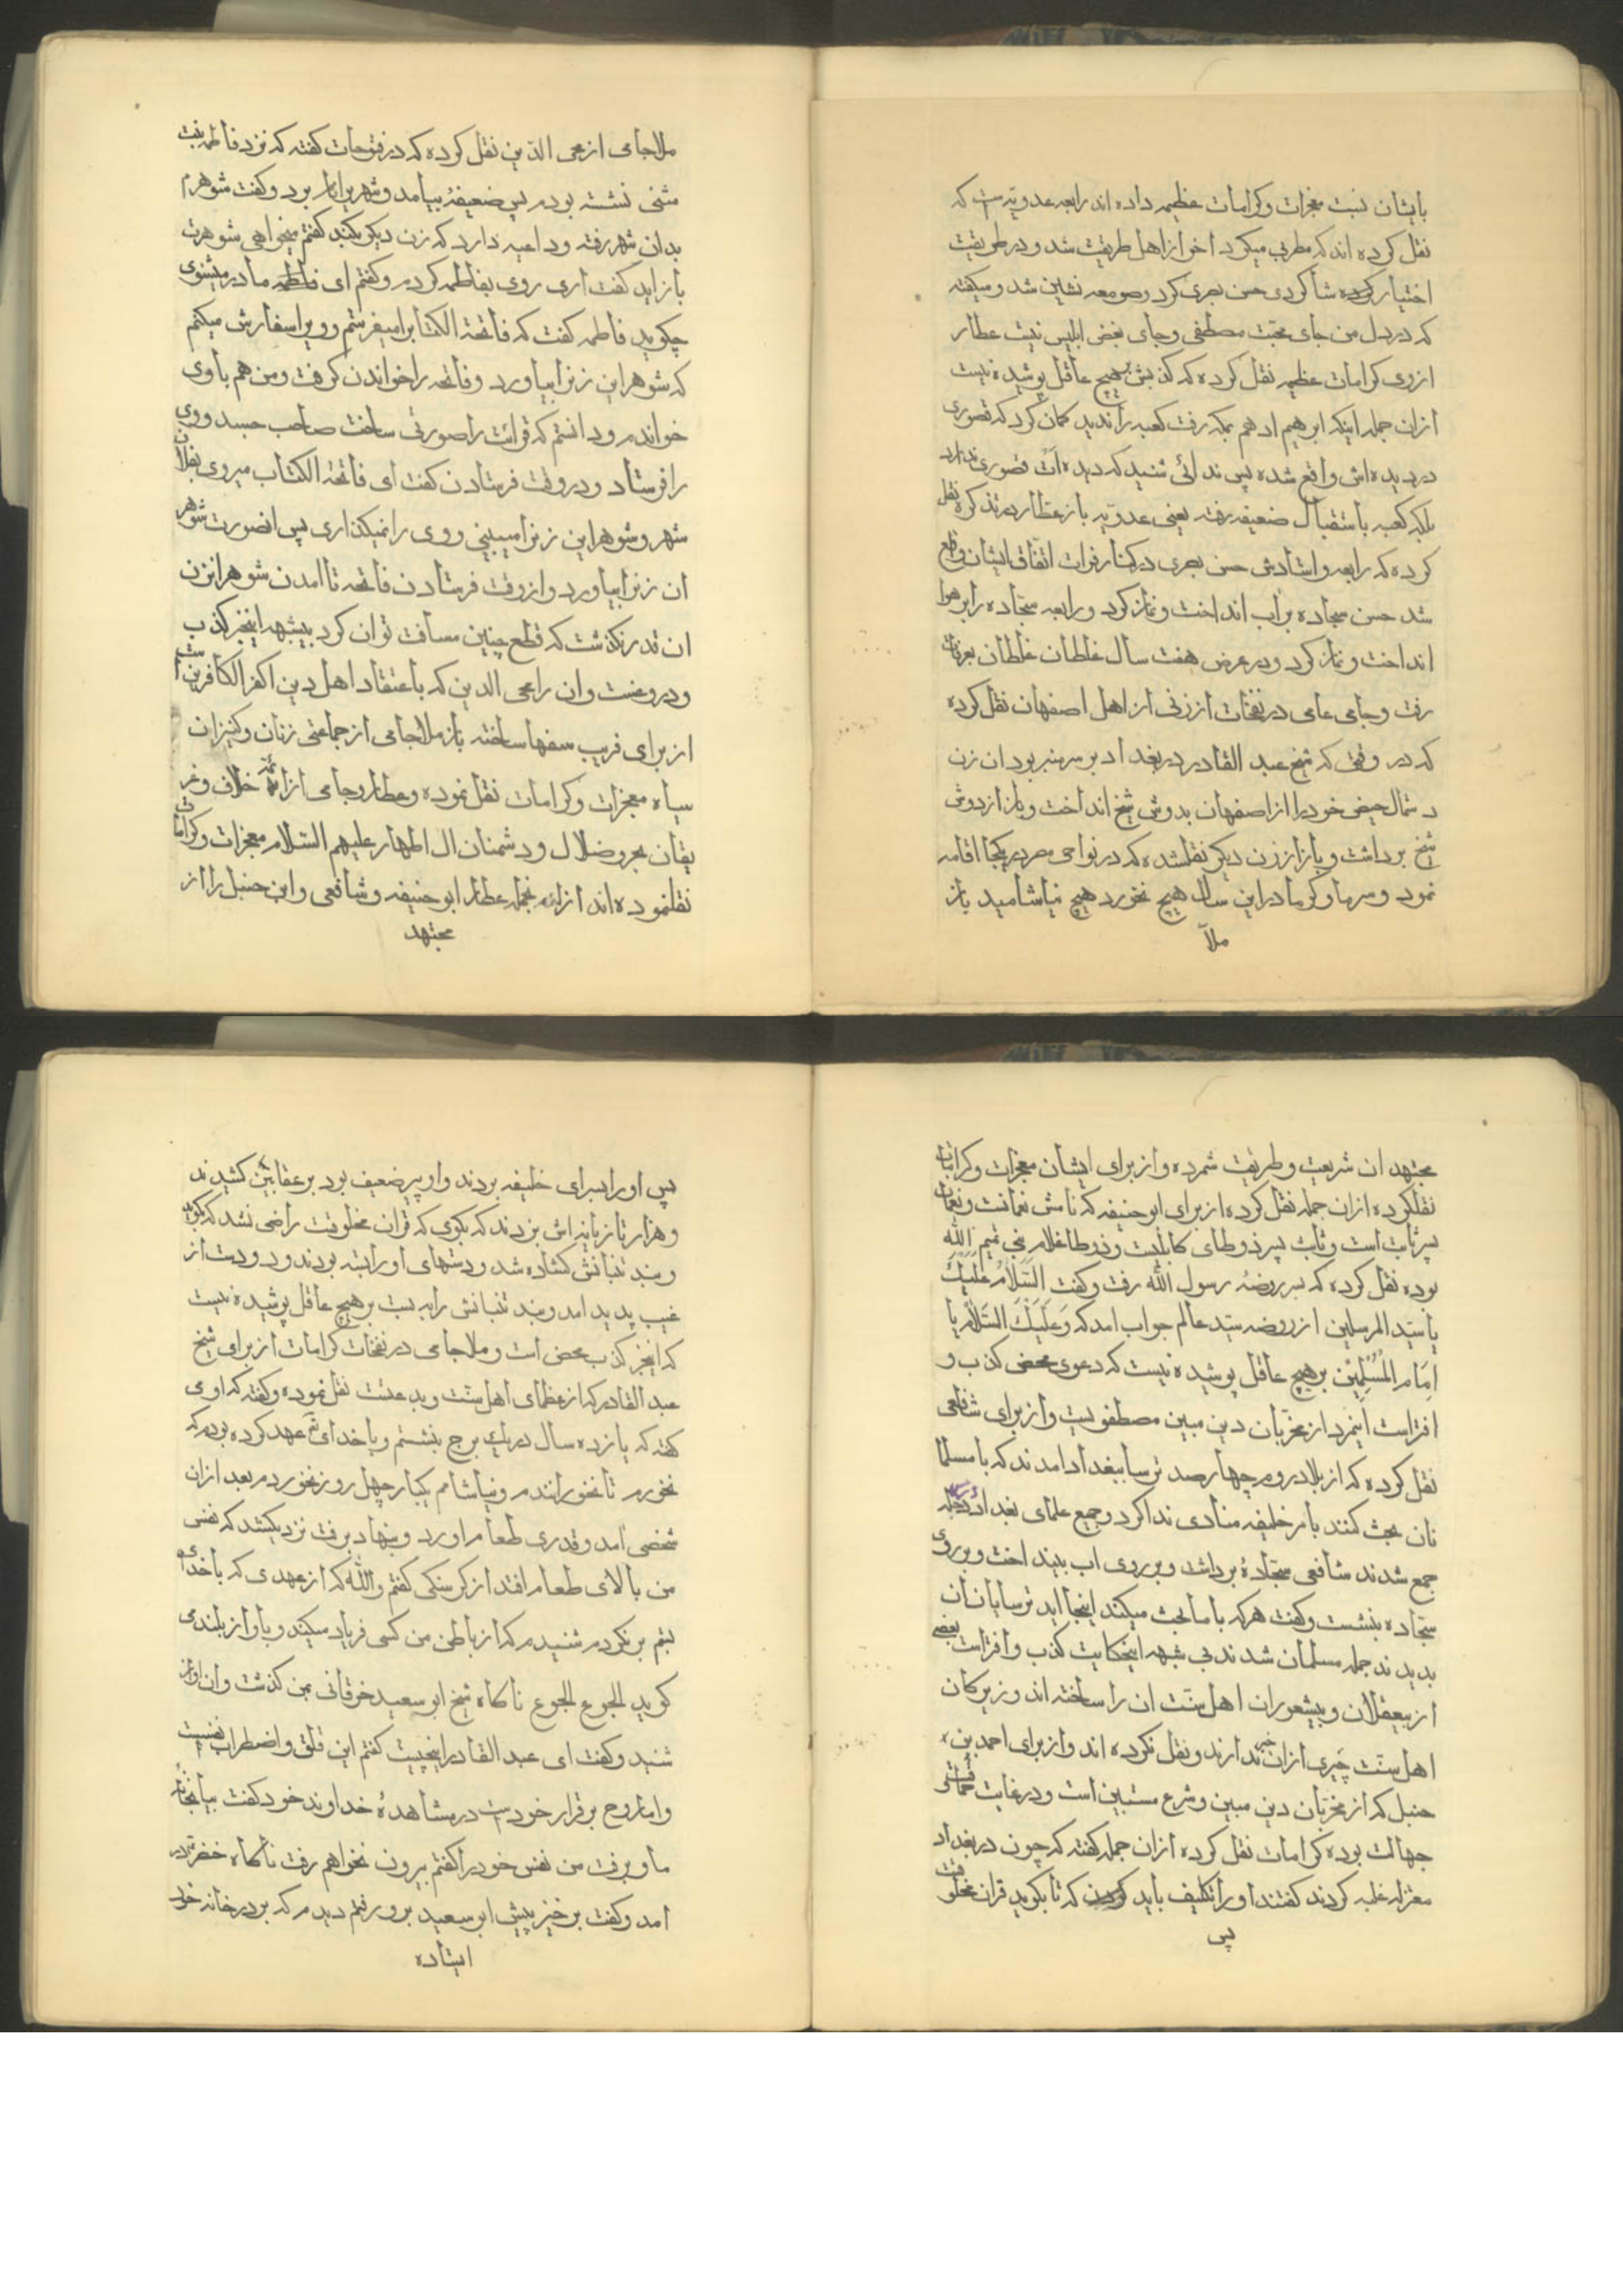 بایشان نسبت معجزات وکرامات عظیمه داده اند رابعه عدویه است که
نقل کرده اند که مطربی میکرد اخر از اهل طریقت شد و در طریقت
اختیار کرده شاکردی حسن بصری کرد و صومعه نشین شد و میکفته
که در دل من جای محبّت مصطفی و جای بغض ابلیس نیست عطار
از وی کرامات عظیمه نقل کرده که کذبش بر هیچ عاقل پوشیده نیست
ازان جمله اینکه ابرهیم ادهم بمکه رفت کعبه را ندید کمان کرد که قصوری
در دیده اش واقع شده پس ندائی شنید که دیده ات قصوری ندارد
بلکه کعبه باستقبال ضعیفه رفته یعنی عدویه باز عطار در تذکره نقل
کرده که رابعه و استادش حسن بصری در کنار فرات اتّفاق ایشان واقع
شد حسن سجاده بر اب انداخت و نماز کرد و رابعه سجّاده را بر هوا
انداخت و نماز کرد و در عرض هفت سال غلطان غلطان بعرفات
رفت و جامی عامی در نفحات از زنی از اهل اصفهان نقل کرده
که در وقتی که شیخ عبد القادر در بغداد بر سر منبر بود ان زن
دستمال حیض خود را از اصفهان بدوش شیخ انداخت و باز از دوش
شیخ برداشت و باز از زن دیکر نقلشده که در نواحی مصر در یکجا اقامه
نمود و سرما و کرما در این سال هیچ نخورد هیچ نیاشامید باز
ملاّ
ملاجامی از محی الدّین نقل کرده که در فتوحات کفته که نزد فاطمه بنت
مثنی نشسته بودم پس ضعیفهٔ بیامد و شهریرا نام برد و کفت شوهرم
بدان شهر رفته و داعیه دارد که زن دیکر بکند کفتم میخواهی شوهرت
باز اید کفت اری روی بفاطمه کردم و کفتم ای فاطمه مادر میشنوی
چکوید فاطمه کفت که فاتحة الکتابرا میفرستم و ویرا سفارش میکنم
که شوهر این زنرا بیاورد و فاتحه را خواندن کرفت و من هم باوی
خواندم و دانستم که قرائت را صورتی ساخت صاحب جسد و وی
را فرستاد و در وقت فرستادن کفت ای فاتحة الکتاب میروی بفلان
شهر و شوهر این زنرا میبینی و وی را نمیکذاری پس انصورت شوهر
ان زنرا بیاورد و از وقت فرستادن فاتحه تا امدن شوهر انزن
ان قدر نکذشت که قطع چنین مسافت توان کرد بیشبهه اینخبر کذب
و دروغست و ان را محی الدین که باعتقاد اهل دین اکفر الکافرین است
از برای فریب سفها ساخته باز ملاجامی از جماعتی زنان و کنیزان
سیاه معجزات و کرامات نقل نموده و عطار و جامی از ائمّه خلاف و غر
یقان بحر ضلال و دشمنان ال اطهار علیهم السّلام معجزات و کرامات
نقلنموده اند ازانجمله عطار ابو حنیفه و شافعی و ابن حنبل را از
مجتهد
مجتهدان شریعت و طریقت شمرده و از برای ایشان معجزات و کرامات
نقلکرده ازان جمله نقل کرده از برای ابو حنیفه که نامش نعمانست و نعمان
پسر ثابت است و ثابت پسر زوطای کابلیست و زوطا غلام بنی تیم الله
بوده نقل کرده که بسر روضهٔ رسول الله رفت و کفت السَّلَامُ عَلَیْکَ
یا سیّد المرسلین از روضه سیّد عالم جواب امد که وَعَلَیْکَ السَّلَامُ یا
اِمَامِ الْمُسْلِمِیْن بر هیچ عاقل پوشیده نیست که دعوی محض کذب و
افتراست اینمرد از مخرّبان دین مبین مصطفویست و از برای شافعی
نقل کرده که از بلاد روم چهارصد ترسا ببغداد امدند که با مسلما
نان بحث کنند بامر خلیفه منادی ندا کرد و جمیع علمای بغداد بر سر دجله
جمع شدند شافعی سجّادهٔ برداشت و بر روی اب بینداخت و بر روی
سجّاده بنشست و کفت هر که با ما بحث میکند اینجا اید ترسایان ان
بدیدند جمله مسلمان شدند بی شبهه اینحکایت کذب و افتراست بعضی
از بیعقلان و بیشعوران اهل سنّت ان را ساخته اند و زیرکان
اهل سنّت خبری ازان ندارند و نقل نکرده اند و از برای احمد بن
حنبل که از مخرّبان دین مبین و شرع مستبین است و در غایت حماقت و
جهالت بوده کرامات نقل کرده ازان جمله کفته که چون در بغداد
معتزله غلبه کردند کفتند او را تکلیف باید کردن که تا بکوید قران مخلوقست
پس
پس او را بسرای خلیفه بردند و او پیر ضعیف بود بر عقابین کشیدند
و هزار تازیانه اش بزدند که بکوی که قران مخلوقست راضی نشد که بکوید
و بند تنبانش کشاده شد و دستهای او را بسته بودند و دو دست از
غیب پدید امد و بند تنبانش را ببست بر هیچ عاقل پوشیده نیست
که اینخبر کذب محض است و ملاجامی در نفحات کرامات از برای شیخ
عبد القادر که از عظمای اهل سنّت و بدعتست نقل نموده و کفته که او می
کفته که یازده سال در یک برج بنشستم و با خدای تع عهد کرده بودم که
نخورم تا نخورانندم و نیاشامم یکبار چهل روز نخوردم بعد ازان
شخصی امد و قدری طعام اورد و بنهاد برفت نزدیکشد که نفس
من بالای طعام افتد از کرسنکی کفتم و الله که از عهدی که با خدای
بستم بر نکردم شنیدم که از باطن من کسی فریاد میکند و باواز بلند می
کوید الجوع الجوع ناکاه شیخ ابو سعید خرقانی بمن کذشت و ان اواز
شنید و کفت ای عبد القادر اینچیست کفتم این قلق و اضطراب نفسیست
و اما روح برقرار خود است در مشاهدهٔ خداوند خود کفت بیا بخانه
ما و برفت من نفس خود را کفتم بیرون نخواهم رفت ناکاه خضر در
امد و کفت برخیز پیش ابو سعید برو رفتم دیدم که بر در خانه خود
ایستاده